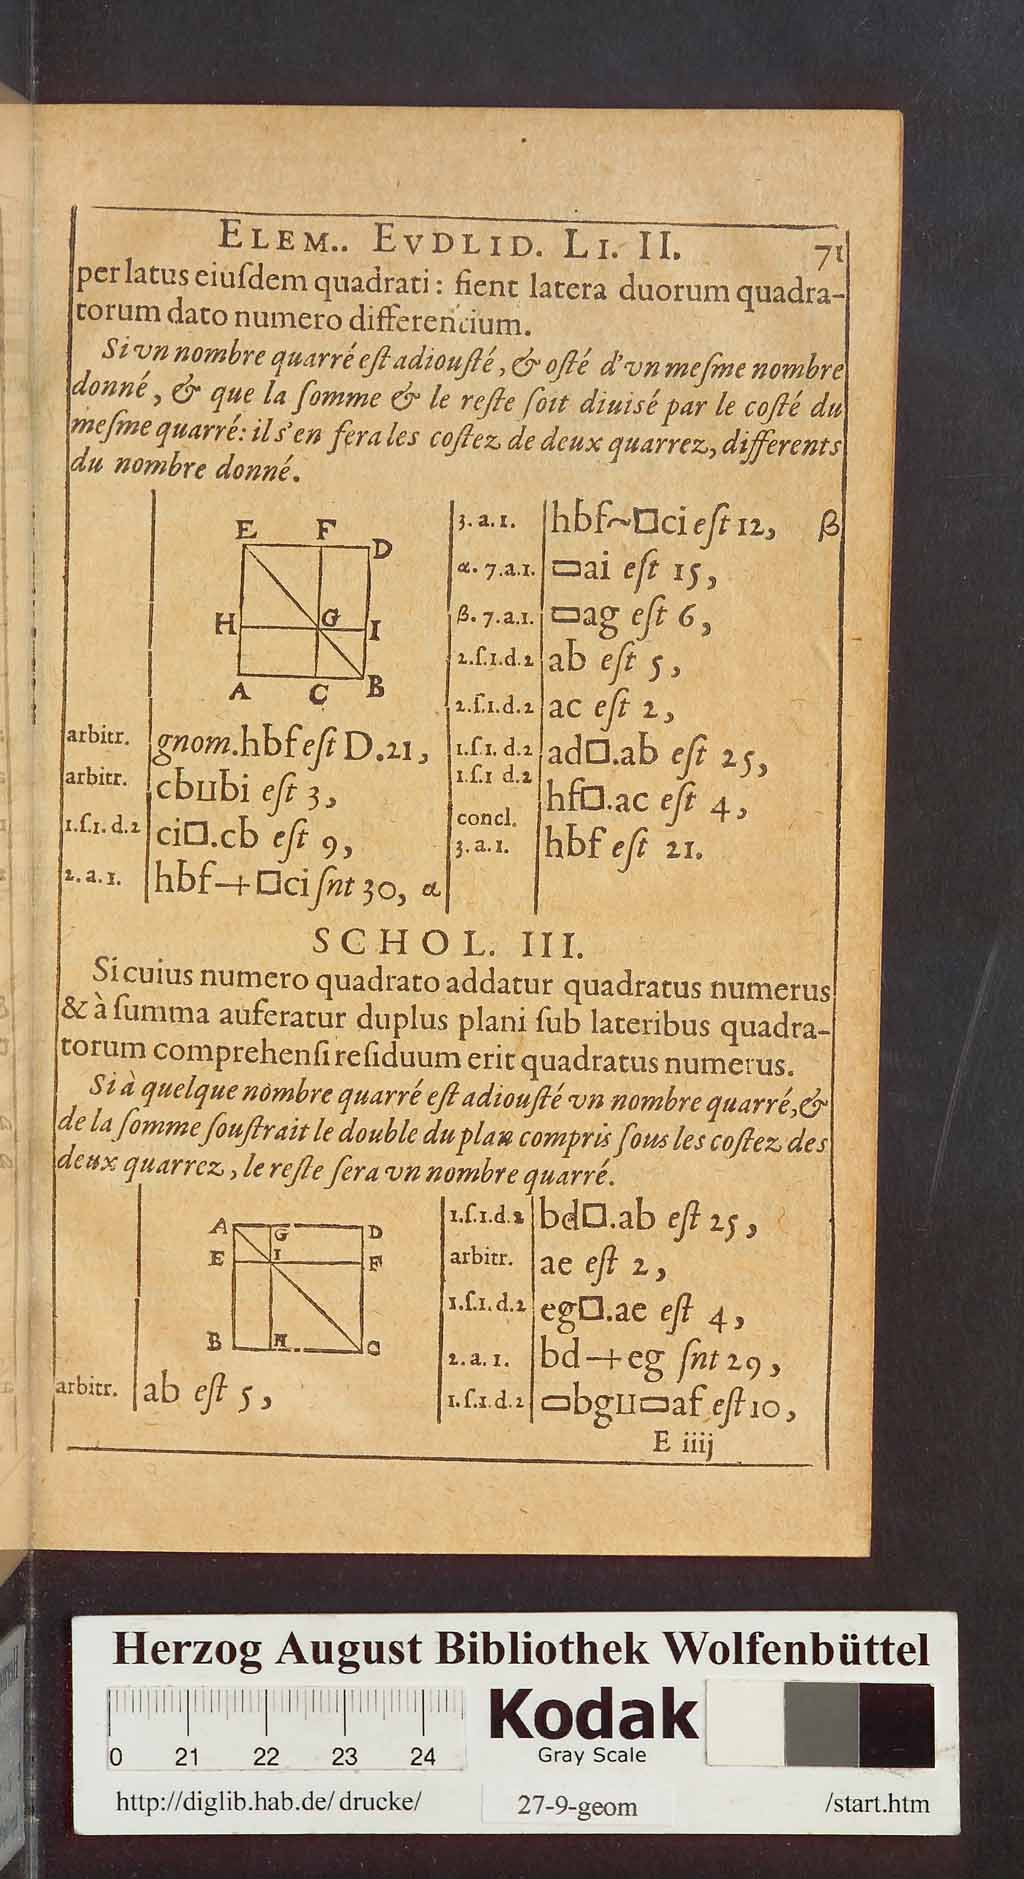 ELEM.. EVDLID. LI. II. 71
per latus eiuſdem quadrati: fient latera duorum quadra-
torum dato numero differentium.
Si vn nombre quarré eſt adiouſté, & oſté d'vn meſme nombre
donné, & que la ſomme & le reſte ſoit diuisé par le coſté du
meſme quarré: il s'en fera les coſtez de deux quarrez, differents
du nombre donné.
E F D
H G I
A C B
arbitr. gnom.hbf eſt D.21,
arbitr. cb⊔bi eſt 3,
1.ſ.1.d.2 ci□.cb eſt 9,
2.a.1. hbf+□ci ſnt 30, α
3.a.1. hbf~□ci eſt 12, β
α. 7.a.1. ▭ai eſt 15,
β. 7.a.1. ▭ag eſt 6,
2.ſ.1.d.2 ab eſt 5,
2.ſ.1.d.2 ac eſt 2,
1.ſ1. d.2 ad□.ab eſt 25,
1.ſ.1 d.2 hf□.ac eſt 4,
concl.
3.a.1. hbf eſt 21.
SCHOL. III.
Si cuius numero quadrato addatur quadratus numerus
& à ſumma auferatur duplus plani ſub lateribus quadra-
torum comprehenſi reſiduum erit quadratus numerus.
Si à quelque nombre quarré eſt adiouſté vn nombre quarré, &
de la ſomme ſouſtrait le double du plan compris ſous les coſtez des
deux quarrez, le reſte ſera vn nombre quarré.
A G D
E I F
B H C
arbitr. ab eſt 5,
1.ſ.1.d.2 bd□.ab eſt 25,
arbitr. ae eſt 2,
1.ſ.1.d.2 eg□.ae eſt 4,
2.a.1. bd+eg ſnt 29,
1.ſ.1.d.2 ▭bg⊔▭af eſt 10,
E iiij
Herzog August Bibliothek Wolfenbüttel
0 21 22 23 24
Kodak
Gray Scale
http://diglib.hab.de/drucke/ 27-9-geom /start.htm